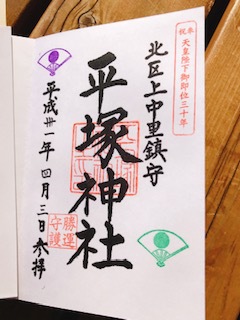 奉祝 天皇陛下御即位三十年
北区上中里鎮守
平塚神社
勝運守護
平成卅一年四月三日参拝